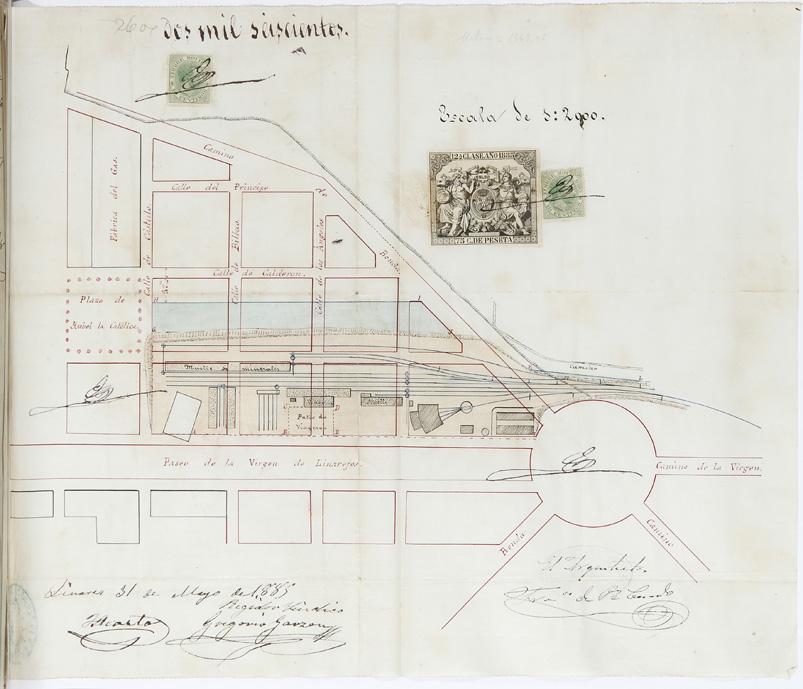 260
Dos mil seiscientos.
Escala de 1:2000.
12ª CLASE AÑO 1885
75 C. DE PESETA
Camino
de
Ronda
Fábrica del Gas.
Calle de Cástulo.
Calle del Príncipe
Calle de Bilbao
Calle de los Angeles
Calle de Calderon.
Plaza de
Isabel la Católica
Muelle de minerales
Patio de
Viageros
Camino
Paseo de la Virgen de Linarejos.
Camino de la Virgen.
Ronda
Camino
Linares 31 de Mayo de 1885
Regidor Síndico
Gregorio Garzon
El Arquitecto